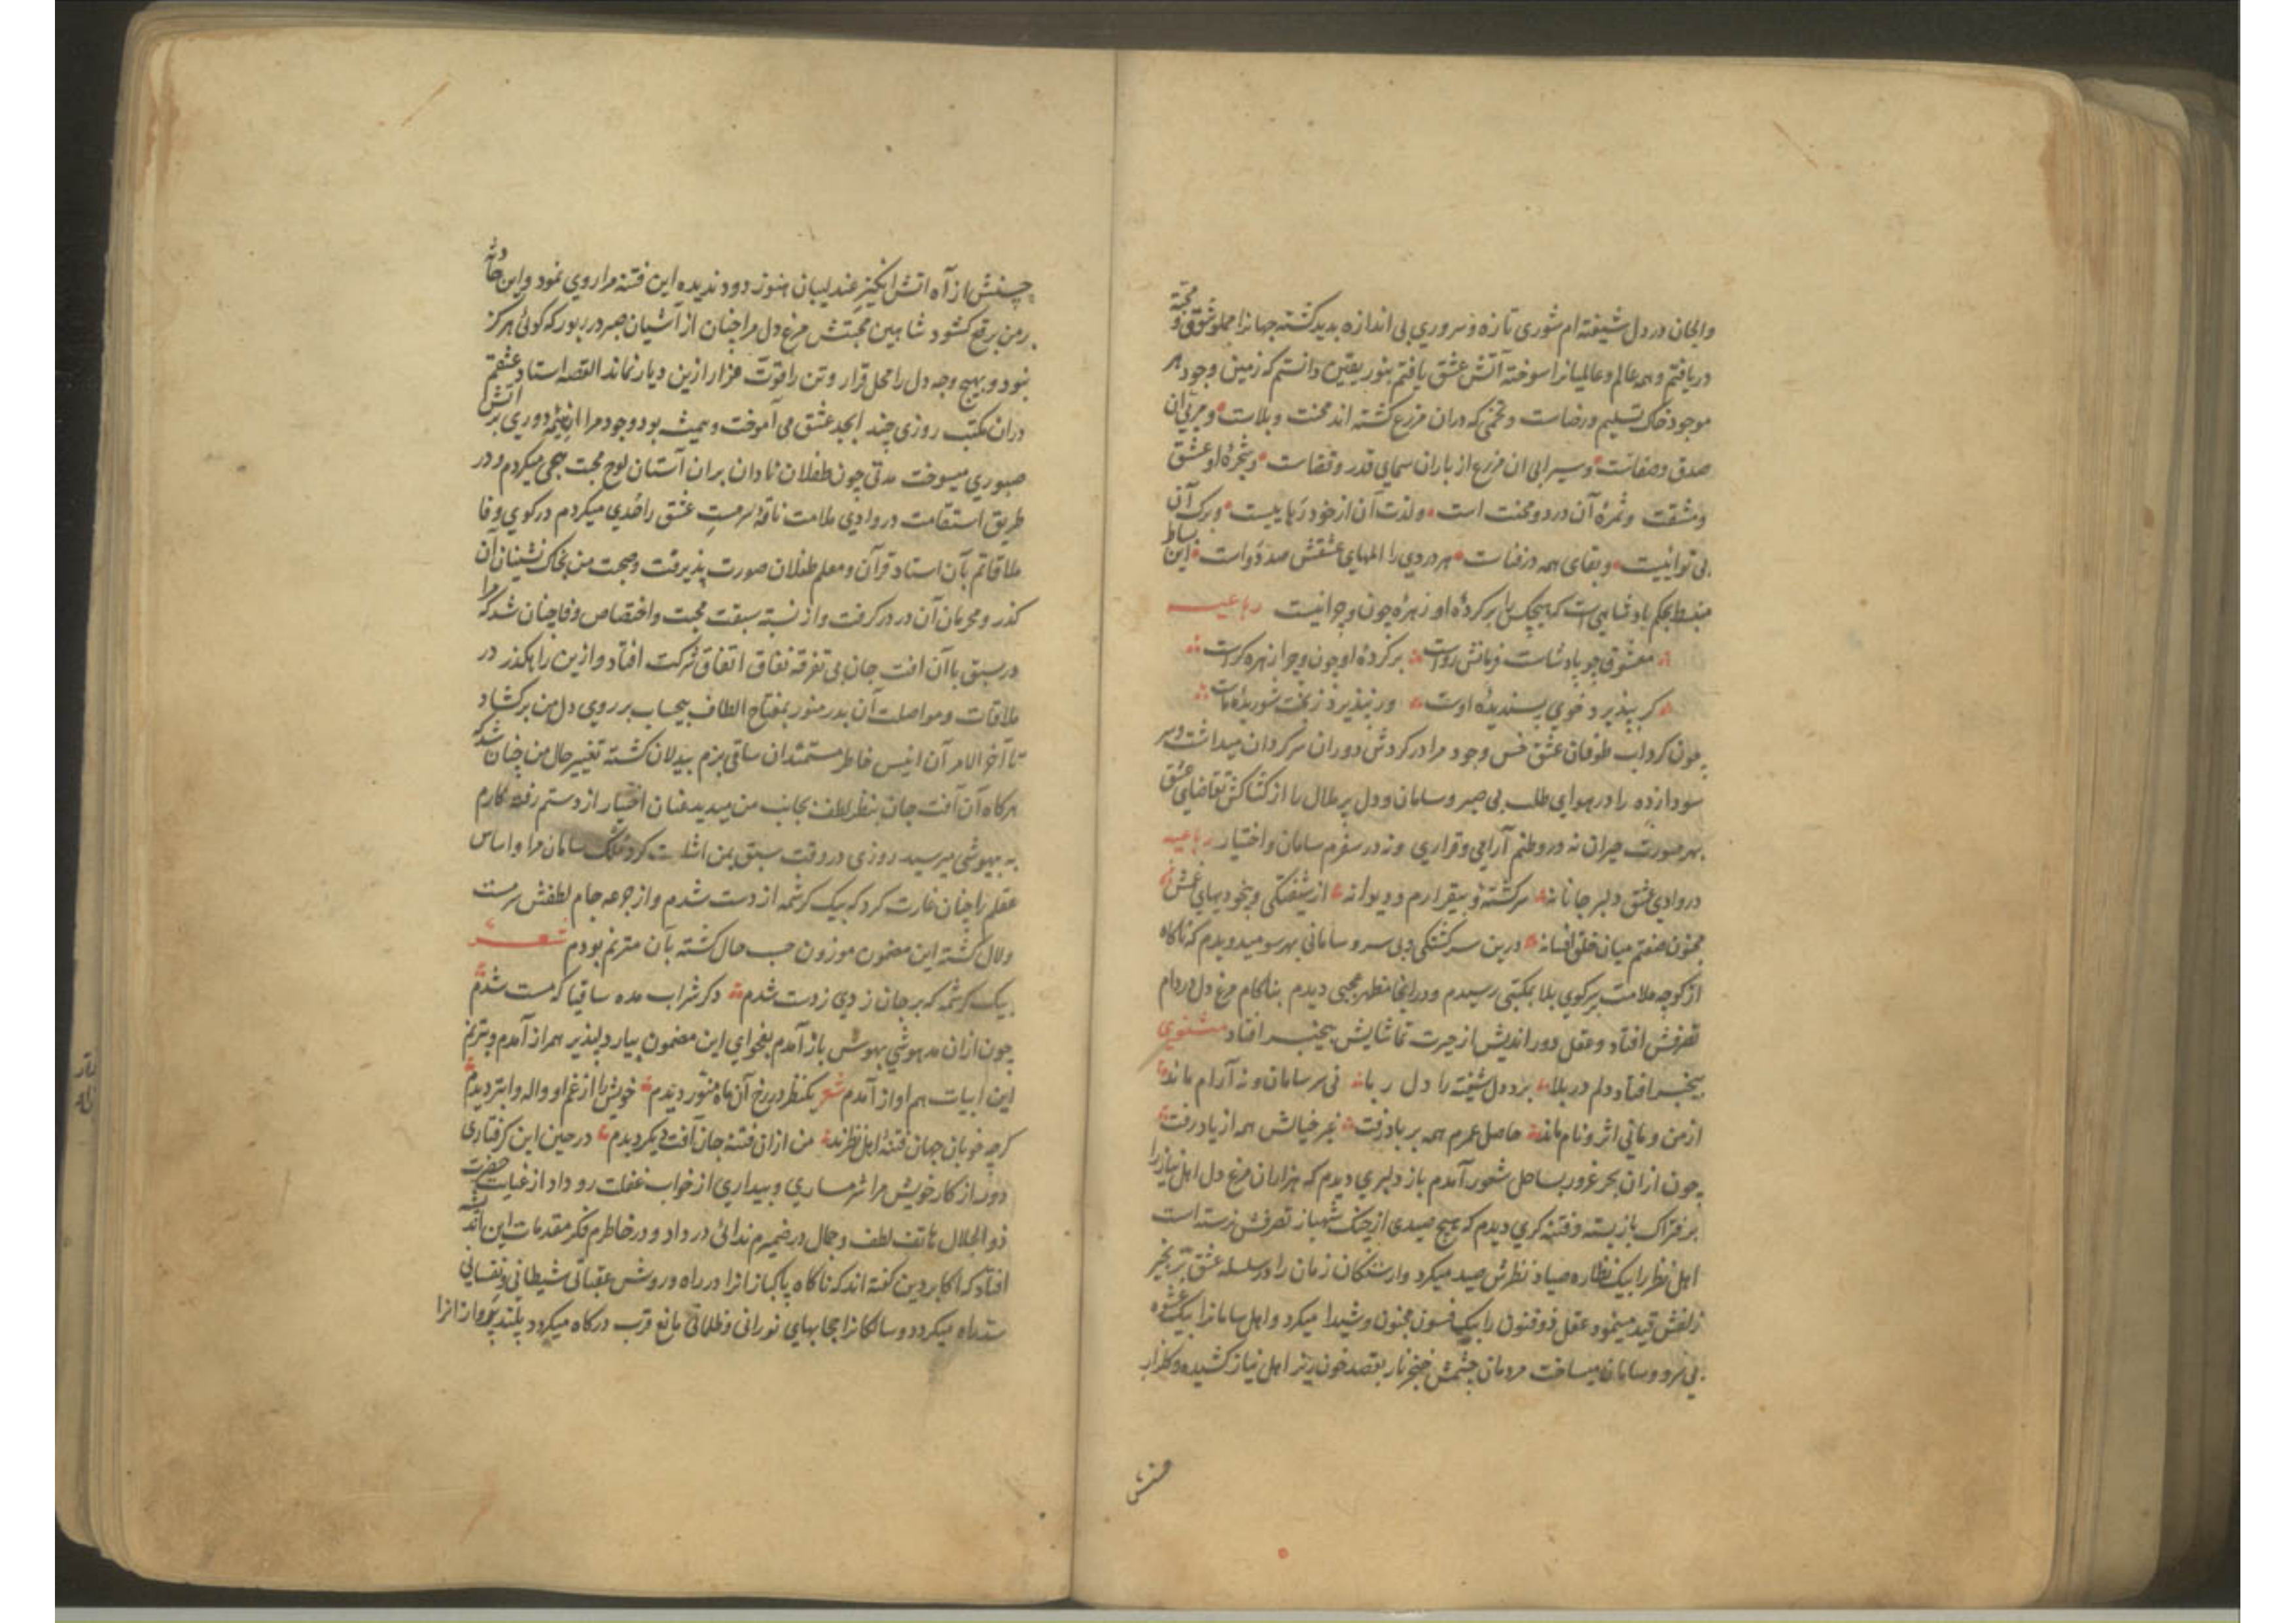 والجان در دل شیفته ام شوری تازه و سروری بی اندازه پدید کشته جهانرا مملو شوق و محبة
دریافتم و همه عالم و عالمیانرا سوخته آتش عشق یافتم بنور یقین دانستم که زمین وجود هر
موجود خاک تسلیم و رضاست و تخمی که دران مزرع کشته اند محنت و بلاست و مربی آن
صدق و صفاست و سیرابی ان مزرع از باران سمای قدر و قضاست و شجرۀ او عشق
و مشقت و ثمرۀ آن درد و محنت است و لذت آن از خود رهاییست و برک آن
بی نوائیست و بقای همه در فناست هر دردی را المهای عشقش صد دواست این بساط
منبسط بحکم پادشاهیست که هیچکس را بر کردۀ او زهرۀ چون و چرا نیست رباعیه
معشوق چو پادشاست فرمانش رواست بر کردۀ او چون و چرا زهره کراست
کر بپذیرد خوی پسندیدۀ اوست ور نپذیرد ز بخت شوریدۀ ماست
چون کرداب طوفان عشق خس وجود مرا در کردش دوران سرکردان میداشت و سر
سودا زده را در هوای طلب بی صبر و سامان و دل پر ملال را از کشاکش تقاضای عشق
بهر صورت حیران نه در وطنم آرامی و قراری و نه در سفرم سامان و اختیار رباعیه
در وادی عشق دلبر جانانه سرکشته و بیقرارم و دیوانه از شیفتکی و بیخودیهای عشق
مجنون صفتم میان خلق افسانه درین سرکشتکی و بی سر و سامانی بهر سو میدویدم که ناکاه
از کوچه ملامت بر کوی بلا بمکتبی رسیدم و در انجا منظر عجبی دیدم بناکام مرغ دل در دام
تصرفش افتاد و عقل دور اندیش از حیرت تماشایش بیخبر افتاد مثنوی
بیخبر افتاد دلم در بلا برد دل شیفته را دل ربا نی سر سامان و نه آرام ماند
از من و مائی اثر و نام ماند حاصل عمرم همه بر باد رفت غیر خیالش همه از یاد رفت
چون ازان بحر غرور بساحل شعور آمدم باز دلبری دیدم که هزاران مرغ دل اهل نیاز را
بر فتراک باز بسته و فتنه کری دیدم که هیچ صیدی از چنک شهباز تصرفش نرسته است
اهل نظر را بیک نظاره صیاد نظرش صید میکرد و ارستکان زمان را در سلسله عشق زنجیر
زلفش قید مینمود عقل ذو فنون را بیک فسون مجنون و شیدا میکرد و اهل سامانرا بیک عشوه
بی سر و سامان میساخت مردمان چشمش خنجر ناز بقصد خون ریز اهل نیاز کشیده و کلزار
چنش از آه اتش انکیز عندلیبان هنوز دود ندیده این فتنه مرا روی نمود و این حادثه
بر من برقع کشود شاهین محبتش مرغ دل مرا چنان از آشیان صبر در ربود که کوئی هرکز
نبود و بهیچ وجه دل را محل قرار و تن را قوت فرار ازین دیار نماند القصه استاد عشقم
دران مکتب روزی چند ابجد عشق می آموخت و همیشه بود وجود مرا دوری بر آتش
صبوری میسوخت مدتی چون طفلان نادان بران آستان لوح محبت هجی میکردم و در
طریق استقامت در وادی ملامت ناقۀ سرمست عشق را حُدی میکردم در کوی وفا
ملاقاتم بآن استاد قرآن و معلم طفلان صورت پذیرفت و صحبت من بخاک نشینان آن
کذر و محرمان آن در در کرفت و از نسبة سبقت محبت و اختصاص وفا چنان شد که مرا
در سبق با آن افت جان بی تفرقه نفاق اتفاق شرکت افتاد و ازین راهکذر در
ملاقات و مواصلت آن بدر منور بمفتاح الطاف بیحساب بر روی دل من برکشاد
تا آخر الامر آن انیس خاطر مستمندان ساقی بزم بیدلان کشته تغییر حال من چنان شد که
هرکاه آن آفت جان بنظر لطف بجانب من میدید عنان اختیار از دستم رفته کارم
به بیهوشی میرسید روزی در وقت سبق بمن اشارت کرد ملک سامان مرا و اساس
عقلم را چنان غارت کرد که بیک کرشمه از دست شدم و از جرعه جام لطفش سرمست
و لال کشته این مضمون موزون حسب حال کشته بآن مترنم بودم شعر
بیک کرشمه که بر جان زدی ز دست شدم دکر شراب مده ساقیا که مست شدم
چون ازان مدهوشی بهوش باز آمدم بفحوای این مضمون بیار دلپذیر همراز آمدم و بترنم
این ابیات هم اواز آمدم شعر یکنظر در رخ آن ماه منور دیدم خویش را از غم او واله و ابتر دیدم
کرچه خوبان جهان فتنۀ اهل نظرند من ازان فتنه جان آفت دیکر دیدم در حین این کرفتاری
دور از کار خویش مرا شرمساری و بیداری از خواب غفلت رو داد از غیاب حضرت
ذو الجلال هاتف لطف و جمال در ضمیرم ندائی در داد و در خاطرم فکر مقدمات این اندیشه
افتاد که اکابر دین کفته اند که ناکاه پاکبازانرا در راه و روش عقباتی شیطانی و نفسانی
سد راه میکردد و سالکانرا حجابهای نورانی و ظلمانی مانع قرب درکاه میکردد بلند پروازانرا